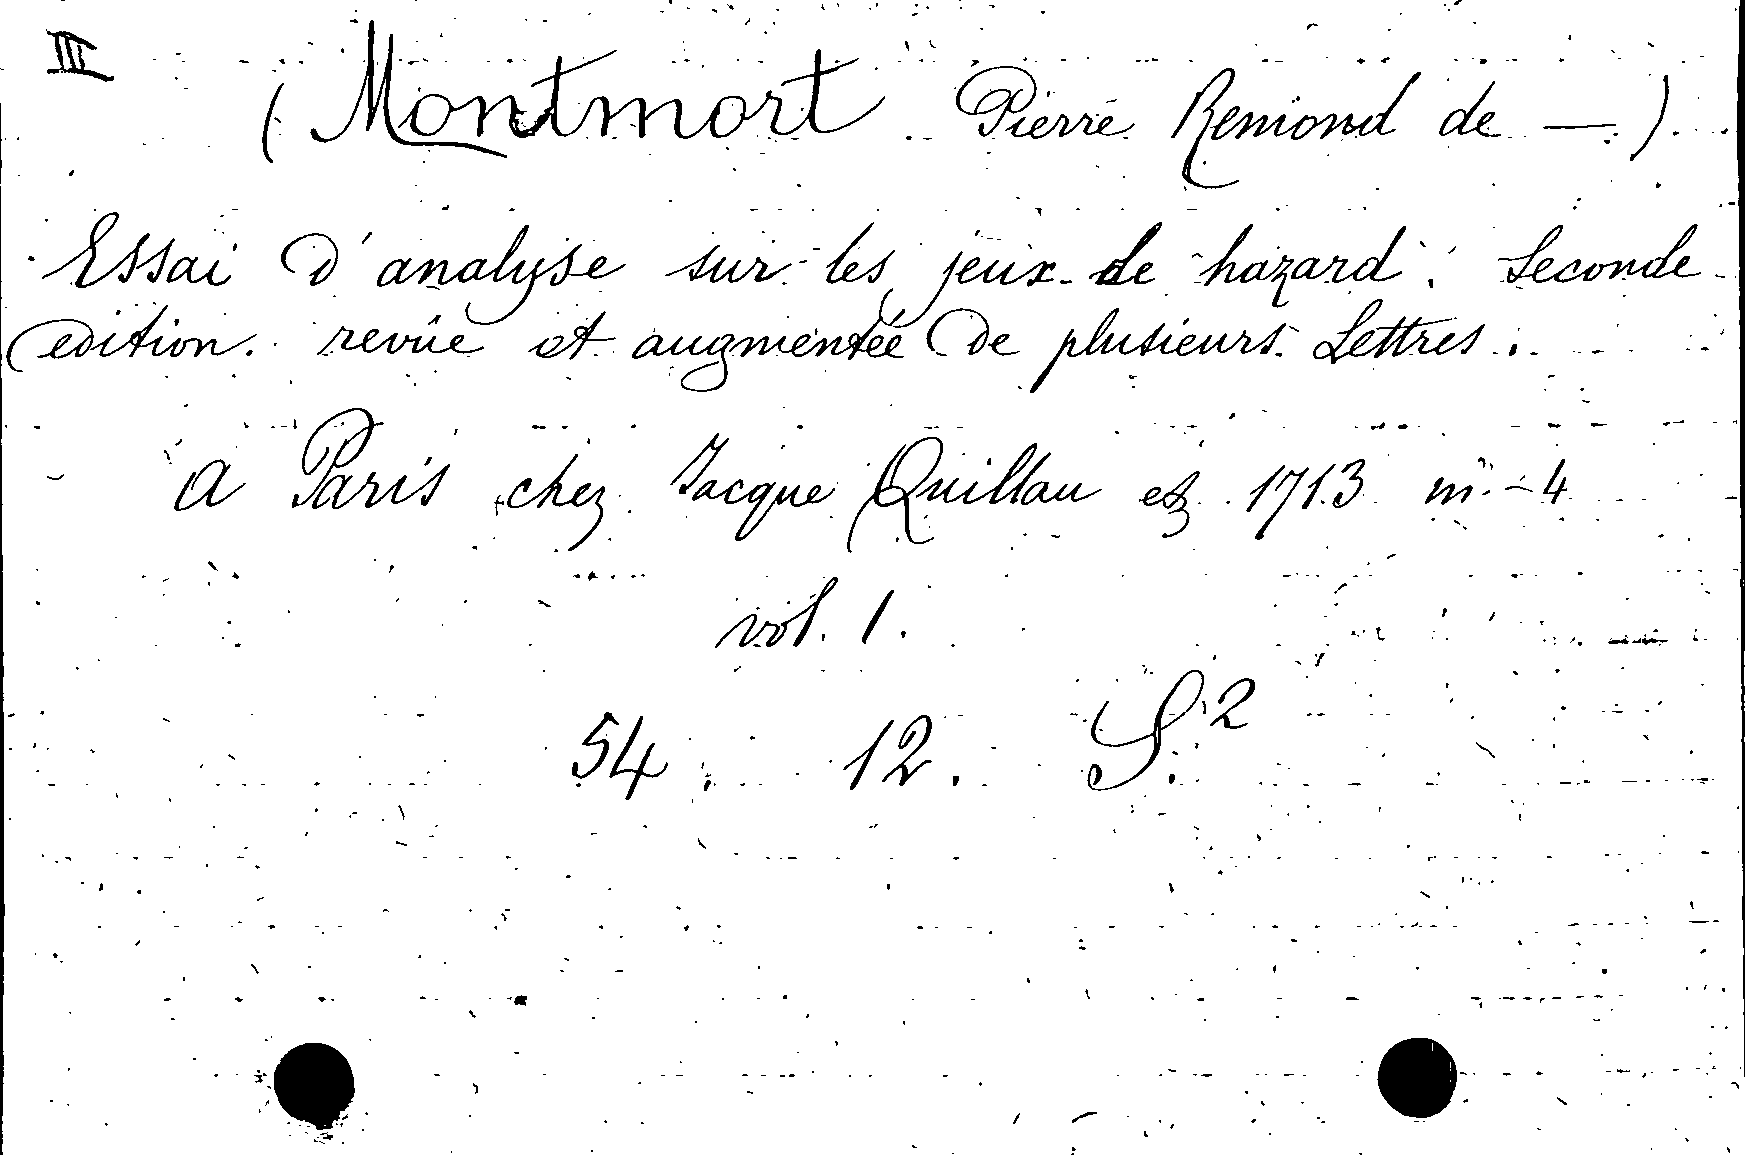 III
(Montmort Pierre Remond de —.)
Essai d'analyse sur les jeux de hazard. Seconde
edition. revûe et augmentée de plusieurs Lettres.
A Paris chez Jacque Quillau 1713 in-4
vol. 1.
54. 12. S.2